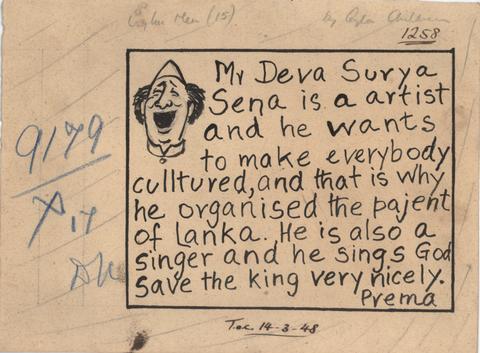 Ceylon Men (15) by Ceylon Children
1258
Mr Deva Surya
Sena is a artist
and he wants
to make everybody
culltured, and that is why
he organised the pajent
of Lanka. He is also a
singer and he sings God
save the king very nicely.
Prema
9179
14-3-48